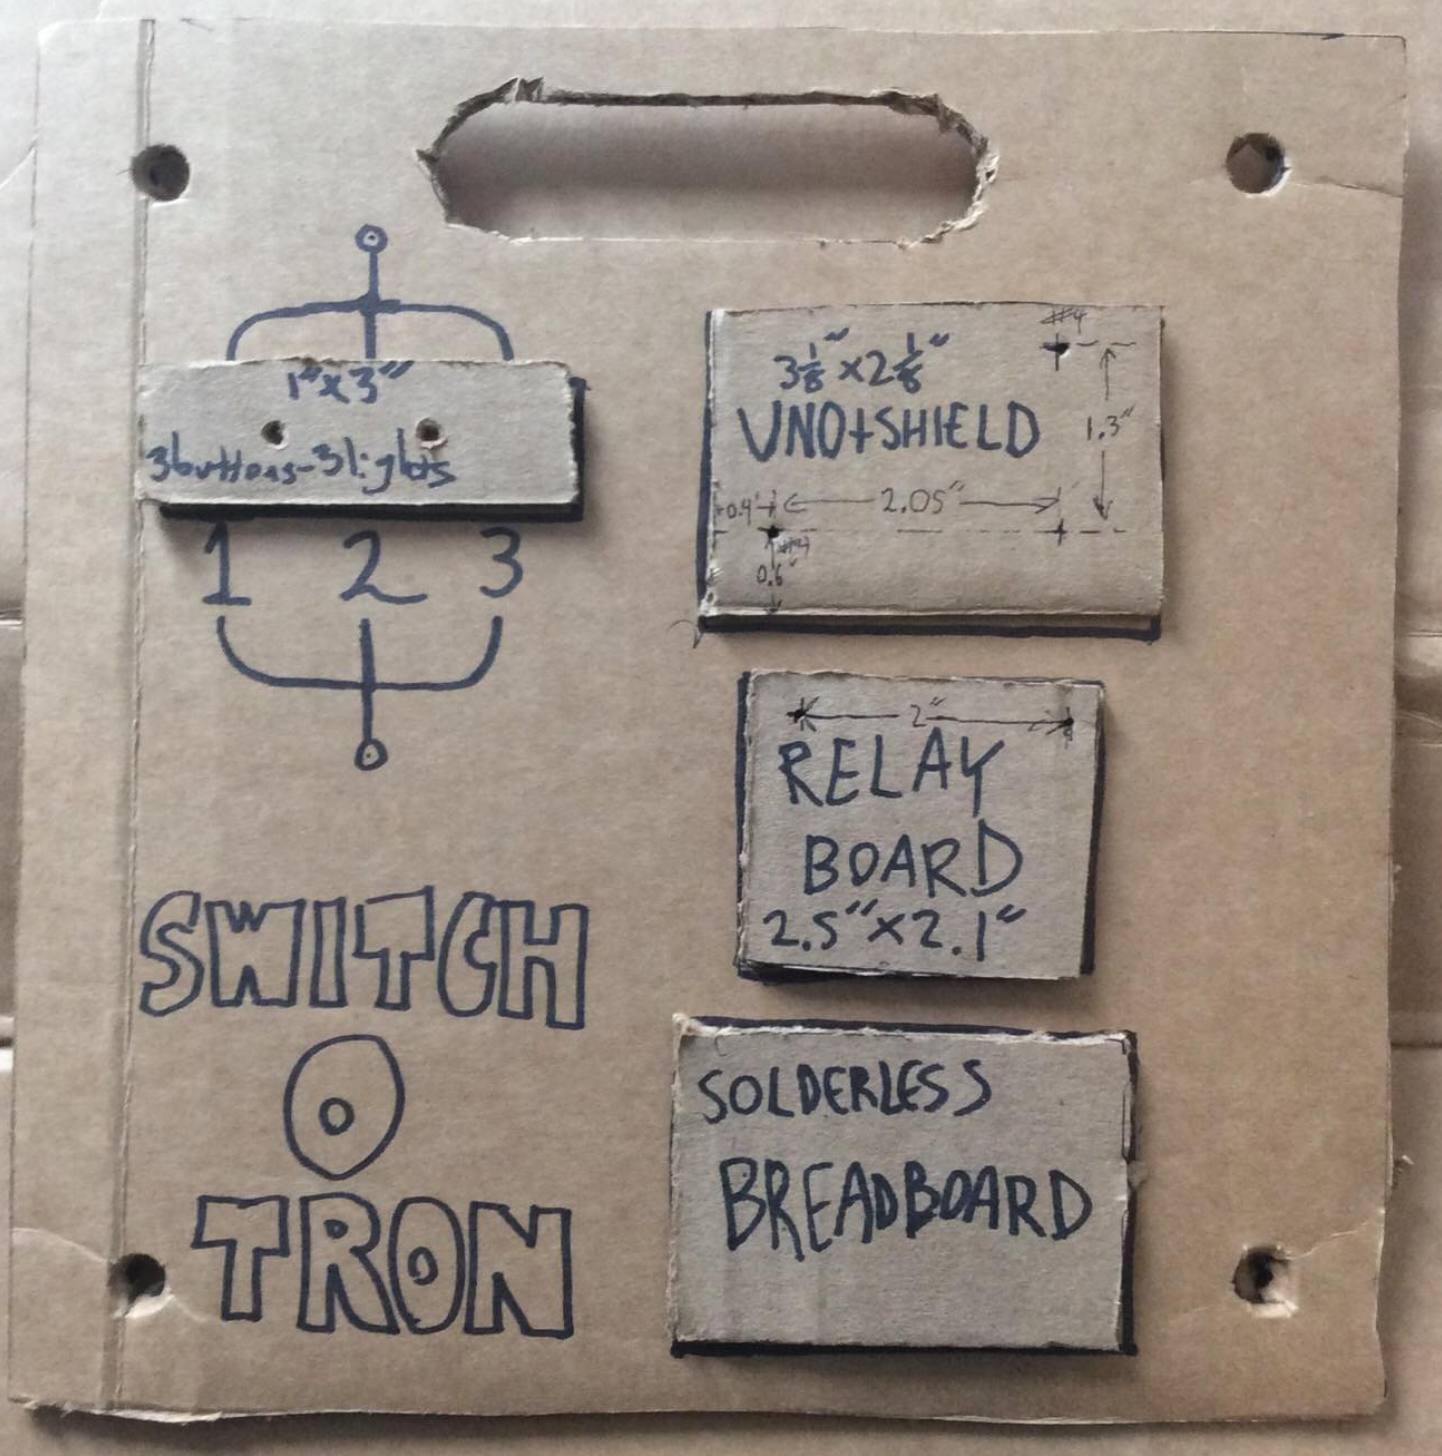 1"x3"
3buttons-3lights
1 2 3
SWITCH
O
TRON
#4
3 1/8" x 2 1/8"
UNO+SHIELD
1.3"
0.4"
2.05"
#4
0.6"
2"
RELAY
BOARD
2.5"x2.1"
SOLDERLESS
BREADBOARD